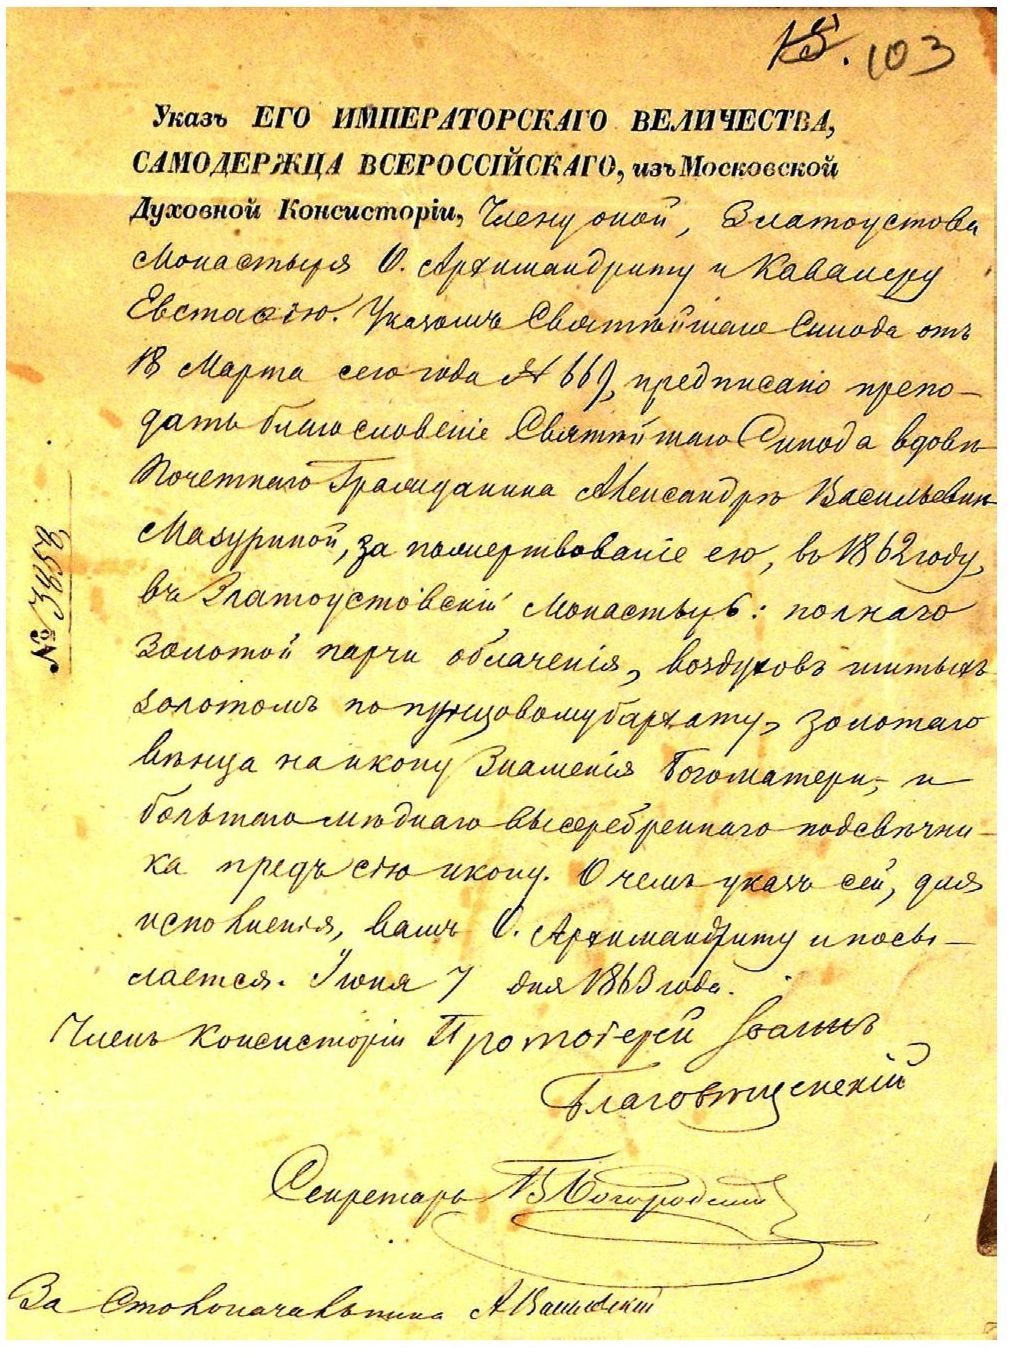 103
Указъ ЕГО ИМПЕРАТОРСКАГО ВЕЛИЧЕСТВА,
САМОДЕРЖЦА ВСЕРОССІЙСКАГО, изъ Московской
Духовной Консисторіи, Члену оной, Златоустова
Монастыря О. Архимандриту и Кавалеру
Евстафію. Указомъ Святѣйшаго Синода отъ
18 Марта сего года № 669, предписано препо-
дать благословеніе Святѣйшаго Синода вдовѣ
Почетнаго Гражданина Александрѣ Васильевнѣ
Мазуриной, за пожертвованіе ею, въ 1862 году,
въ Златоустовскій Монастырь: полнаго
золотой парчи облаченія, воздуховъ шитыхъ
золотомъ по пунцовому бархату, золотаго
вѣнца на икону Знаменія Богоматери, и
большаго мѣднаго высеребреннаго подсвѣчни-
ка предъ сію икону. О чемъ указъ сей, для
исполненія, вамъ О. Архимандриту и посы-
лается. Іюня 7 дня 1863 года.
Членъ Консисторіи Протоіерей Іоаннъ
Благовѣщенскій
Секретарь Богородскій
За Столоначальника А
№ 3583